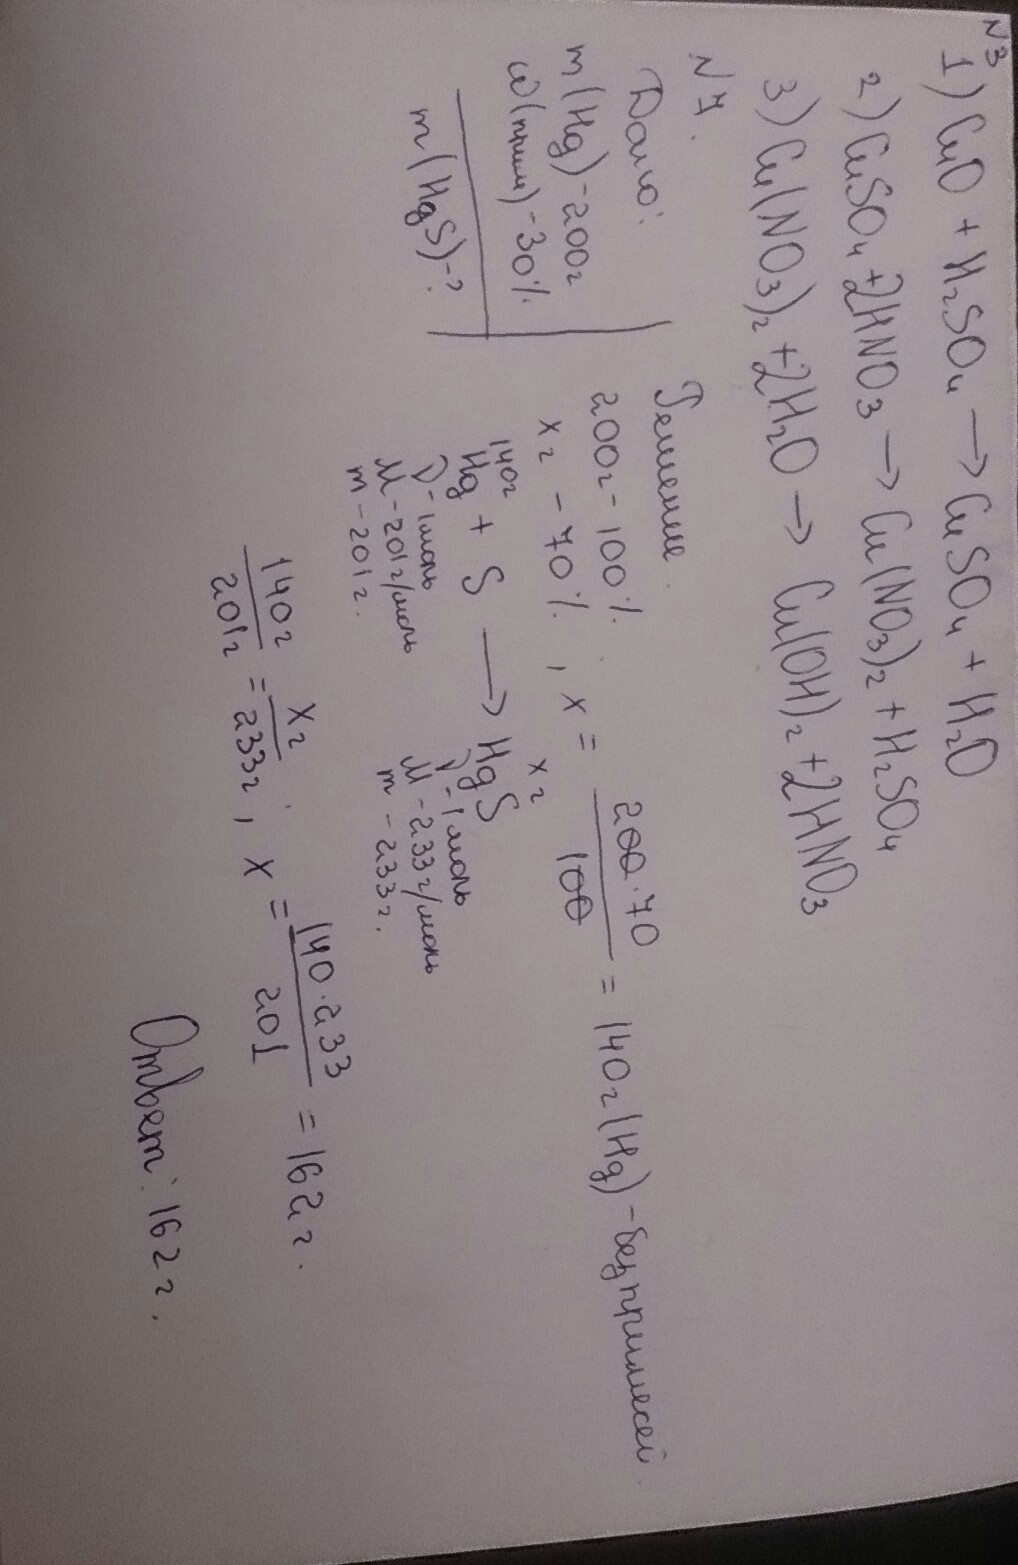 N3
1) CuO + H₂SO₄ → CuSO₄ + H₂O
2) CuSO₄ + 2HNO₃ → Cu(NO₃)₂ + H₂SO₄
3) Cu(NO₃)₂ + 2H₂O → Cu(OH)₂ + 2HNO₃
N7.
Дано:
m(Hg) - 200г
ω(прим) - 30%
m(HgS) - ?
Решение.
200г - 100%
xг - 70%, x = 200·70/100 = 140г (Hg) - без примесей.
140г xг
Hg + S → HgS
ν - 1моль ν - 1моль
M - 201г/моль M - 233г/моль
m - 201г. m - 233г.
140г/201г = xг/233г, x = 140·233/201 = 162г.
Ответ: 162г.